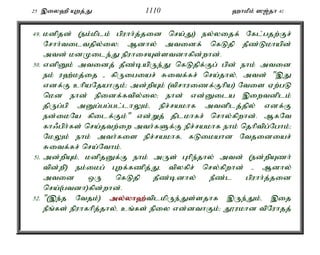 25 இலைஹி யுறத்து 1110 ஹாமீம் ஸஜ்தா 41
49. மனிதன் (நம்மிடம் பிரார்த்தனை செய்து) நல்லதைக் கேட்பதற்குச்
சோர்வடைவதில்லை; ஆனால் அவனைக் கெடுதி தீண்டுமாயின்
அவன் மனமுடைந்து நிராசையுள்ளவனாகின்றான்.
50. எனினும் அவனைத் தீண்டியிருந்து கெடுதிக்குப் பின் நாம் அவனை
நம் ரஹ்மத்தை - கிருபையைச் சுவைக்கச் செய்தால், அவன் "இது
எனக்கு உரியதேயாகும்; அன்றியும் (விசாரணைக்குரிய) வேளை ஏற்படு
மென நான் நினைக்கவில்லை; நான் என்னுடைய இறைவனிடம்
திருப்பி அனுப்பப்பட்டாலும், நிச்சயமாக அவனிடத்தில் எனக்கு
நன்மையே கிடைக்கும்" என்று திடமாகச் சொல்கிறான். ஆகவே
காஃபிர்கள் செய்தவற்றை அவர்களுக்கு நிச்சயமாக நாம் தெரிவிப்போம்;
மேலும் நாம் அவர்களை நிச்சயமாக, கடுமையான வேதனையைச்
சுவைக்கச் செய்வோம்.
51. அன்றியும், மனிதனுக்கு நாம் அருள் புரிந்தால் அவன் (நன்றியுணர்
வின்றி) நம்மைப் புறக்கணித்து, விலகிச் செல்கிறான் - ஆனால்
அவனை ஒரு கெடுதி தீண்டினால் நீண்ட பிரார்த்தனை
செய்(பவனா)கின்றான்.
52. "(இந்த வேதம்) அல்லாஹ்விடமிருந்துள்ளதாக இருந்தும், இதை
நீங்கள் நிராகரித்தால், உங்கள் நிலை என்னவாகும்; தூரமான விரோதத்